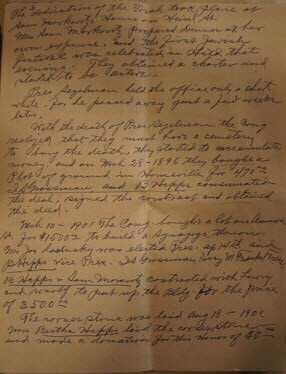 The dedication of the Torah took place at
Sam Moskovitz' Home on Heisel St.
Mrs Sam Moskovitz prepared dinner at her
own expense, and the first Jewish
festival was celebrated in that
evening. They obtained a charter and
started to be active.
Pres Segelman held the office only a short
while. For he passed away just a few weeks
later.
With the death of Pres Segelman the Cong
realized that they must have a cemetery
to bury the death, they started to accumulate
money, and on Mch 28-1896 they bought a
Plot of ground in Homeville for
I S Grossman, and B Hepps consumated
the deal, signed the contract and obtained
the deed.
Mch 10-1901 The Cong. bought a lot on Ammon
St. for $1500 to build a Synagogue thereon.
was elected Pres. and
B Hepps Vice Pres. I S Grossman Secy M
B Hepps & Sam contracted with
and to put up the Bldg. for the price
of 3500
The cornerstone was laid Aug 18-1901
Mrs Bertha Hepps laid the cornerstone
and made a donation for this Honor of